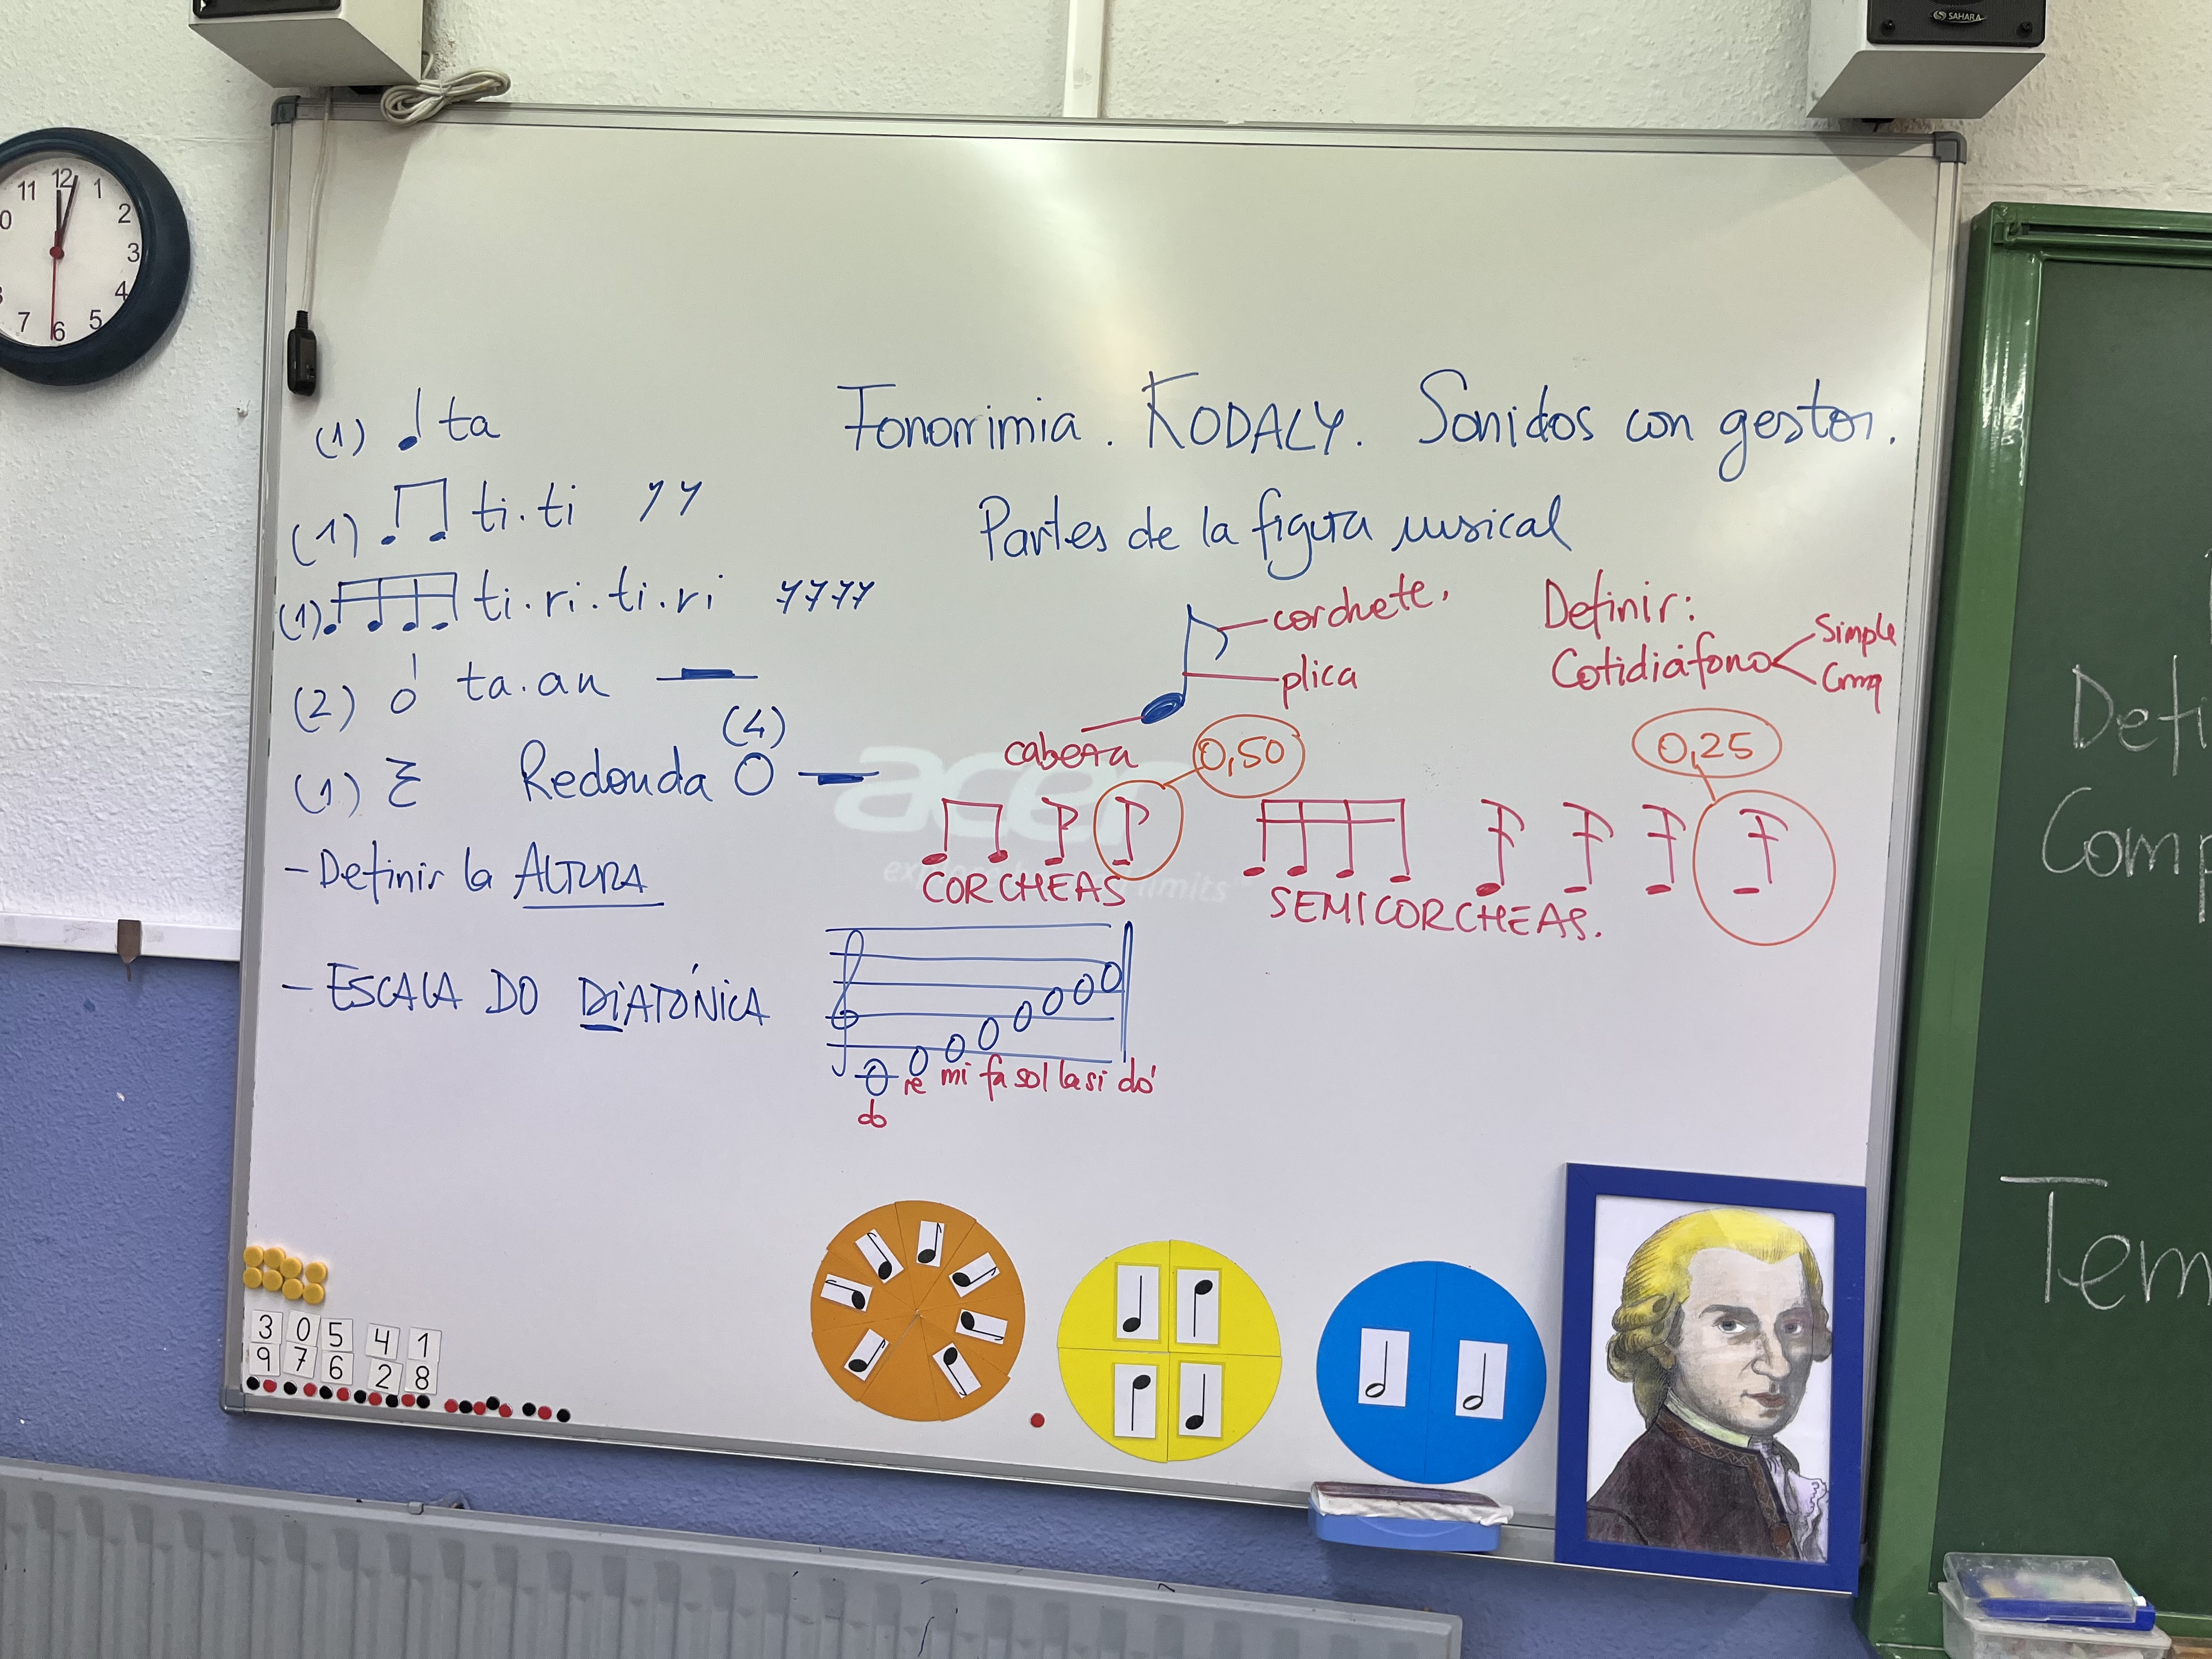 SAHARA
11 12 1
0 2
3
4
7 6 5
(1) ta
Fonomimia. KODALY. Sonidos con gestos.
(1) ti.ti
Partes de la figura musical
(1) ti.ri.ti.ri
corchete.
plica
cabeza
Definir:
Cotidiáfono
Simple
Comp
(2) ta.aa
(4)
(1) Redonda
0,50
0,25
acer
CORCHEAS
SEMICORCHEAS.
- Definir la ALTURA
- ESCALA DO DiATÓNICA
do re mi fa sol la si do'
Defi
Comp
Tem
3 0 5 4 1
9 7 6 2 8